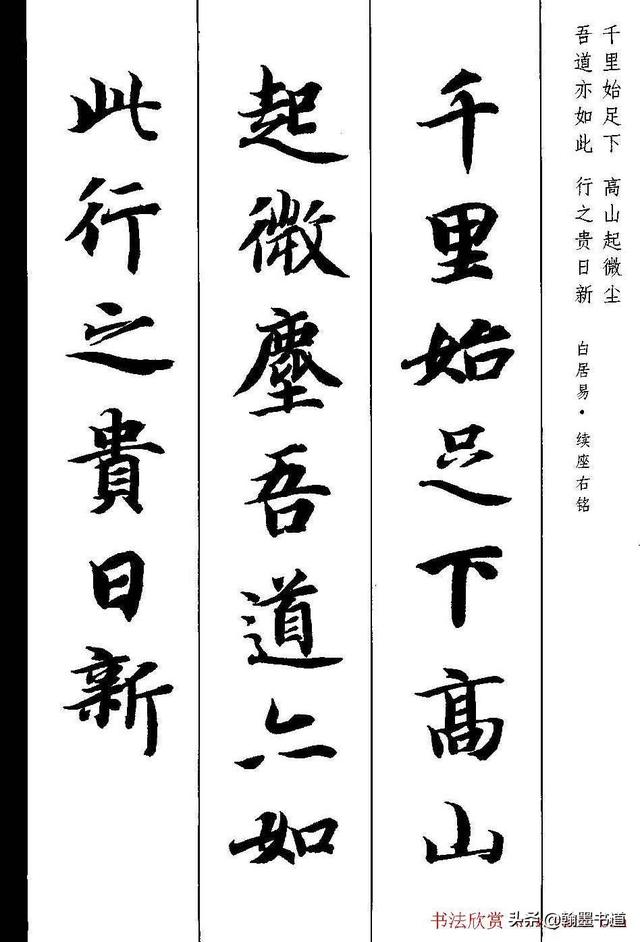 千里始足下 高山起微尘
吾道亦如此 行之贵日新
白居易·续座右铭
千里始足下髙山
起微塵吾道亦如
此行之貴日新
书法欣赏
头条@翰墨书道